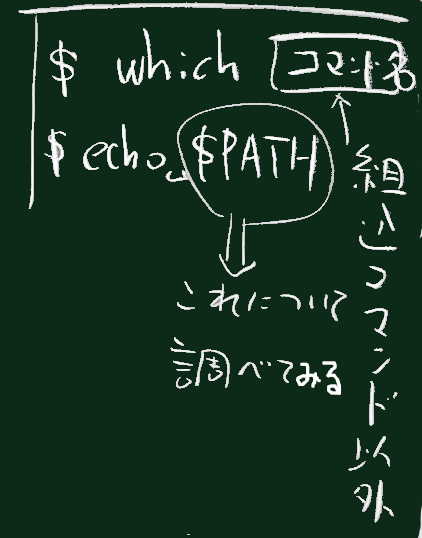 $ which コマンド名
$ echo␣$PATH
これについて
調べてみる
組込コマンド以外